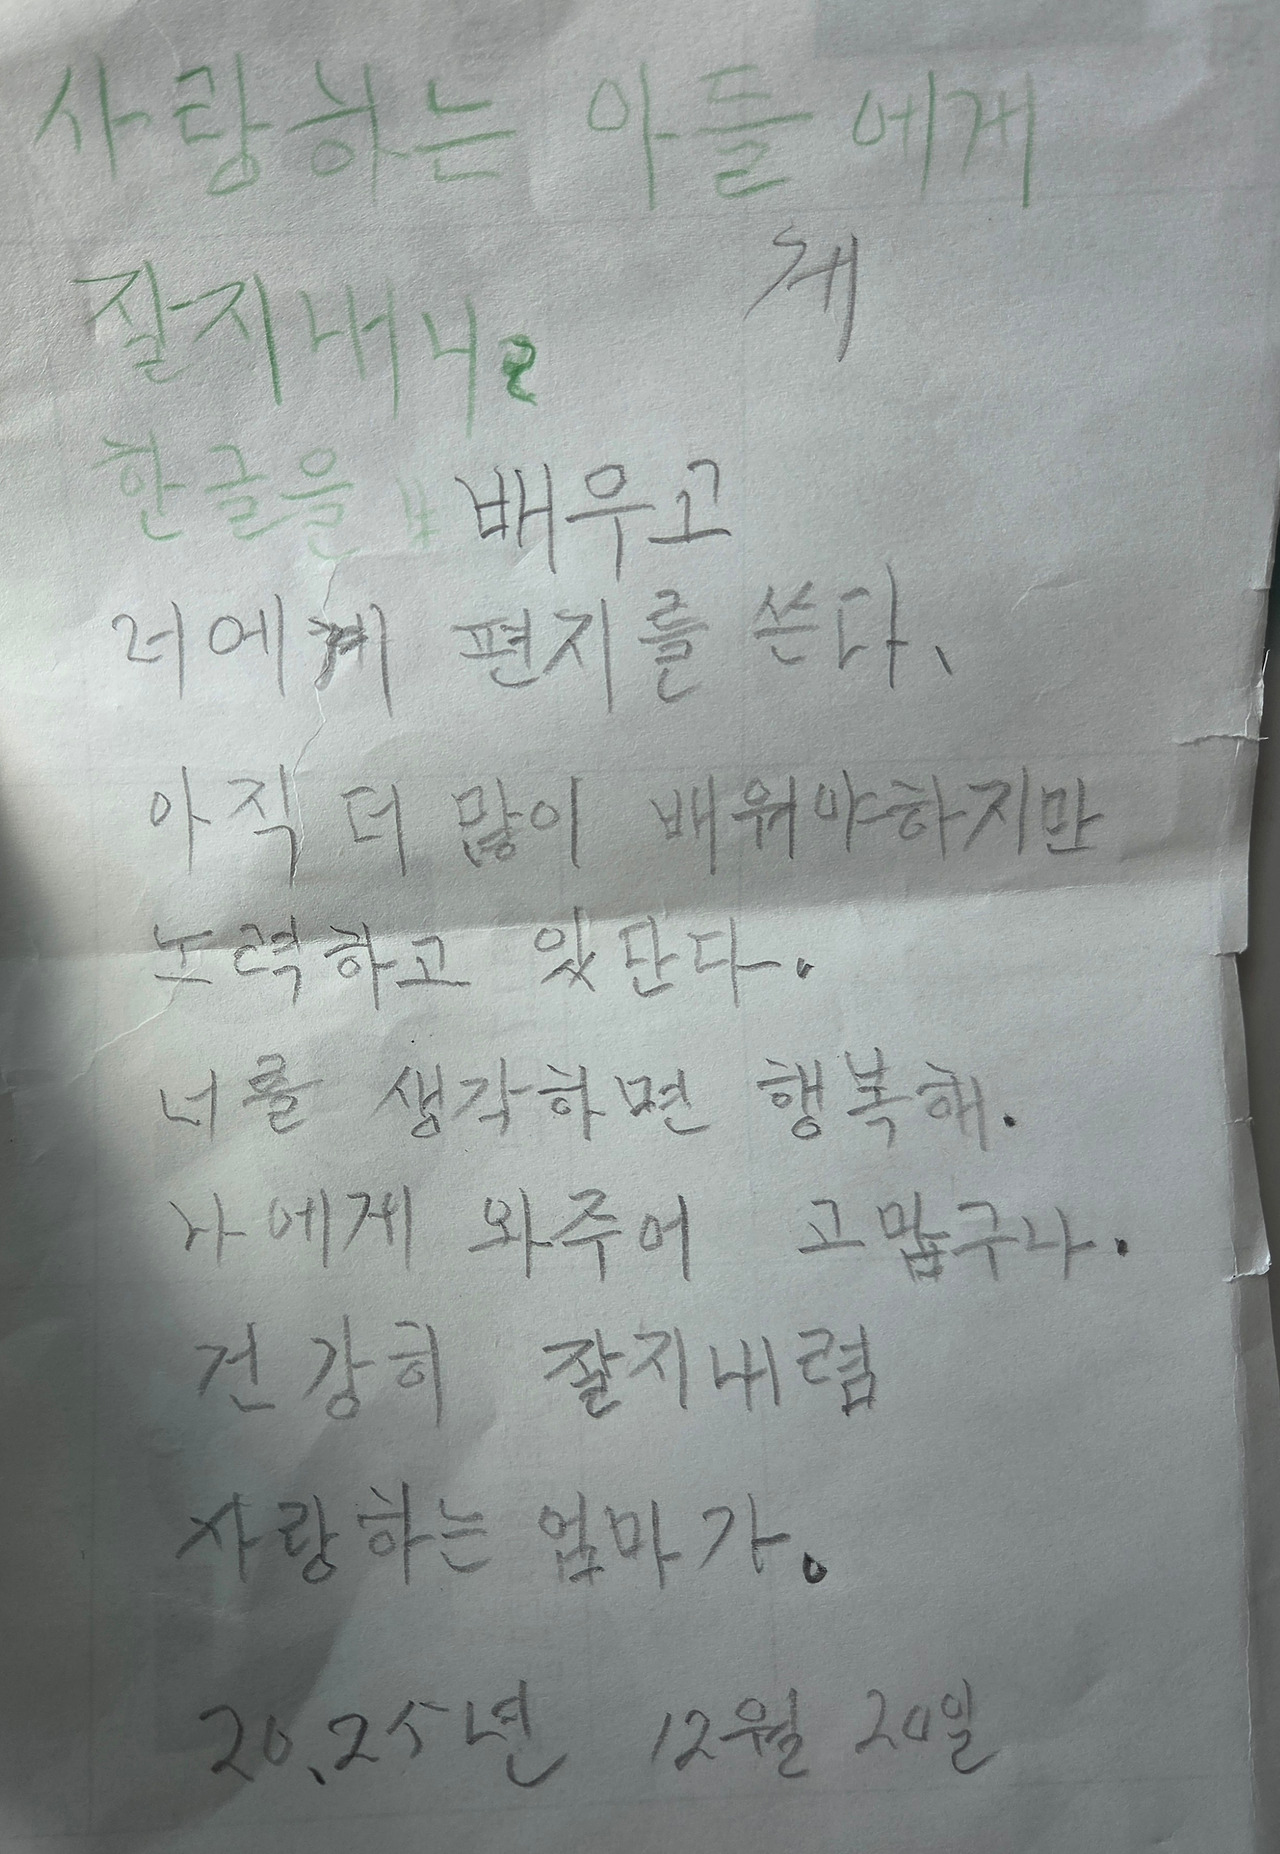 사랑하는 아들에게
게
잘지내니?
한글을 배우고
너에게 편지를 쓴다.
아직 더 많이 배워야하지만
노력하고 있단다.
너를 생각하면 행복해.
나에게 와주어 고맙구나.
건강히 잘지내렴
사랑하는 엄마가.
20.25년 12월 20일